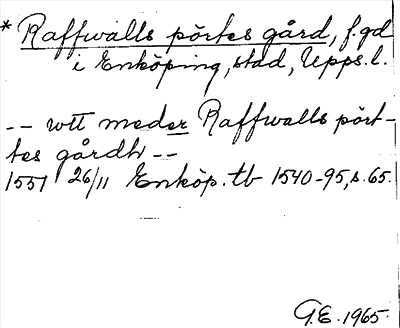 * Raffwalls pörtes gård, f.gd
i Enköping, stad, Upps.l.
-- wtt meder Raffwalls pört-
tes gårdh --
1551 26/11 Enköp. tb 1540-95, s.65.
G.E. 1965.